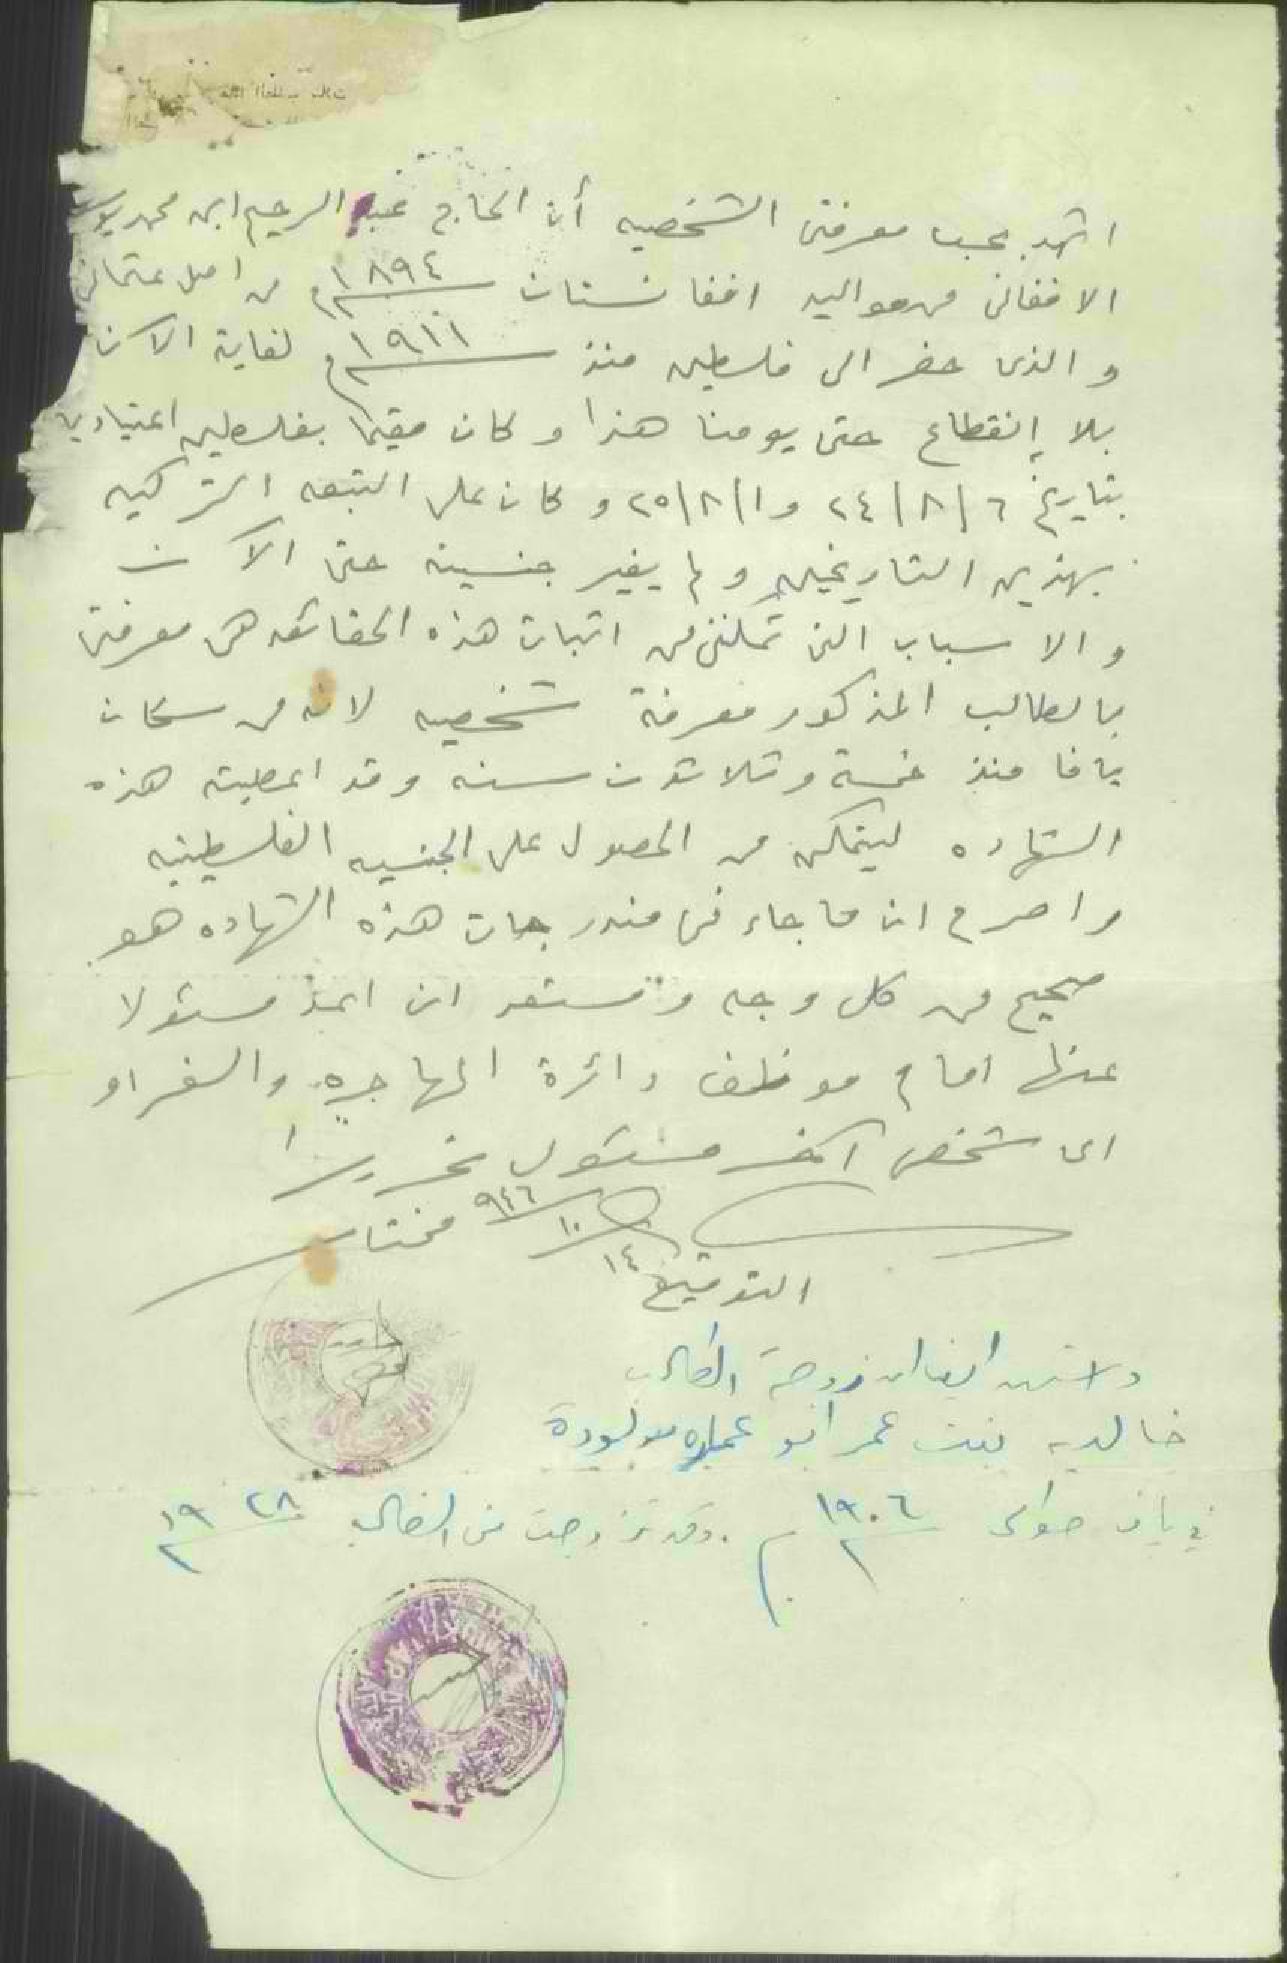 اشهد بحسب معرفتي الشخصيه أن الحاج عبد الرحيم ابن محمد
الافغاني من مواليد افغانستان سنة ١٨٩٤ م من اصل عثماني
والذى حضر الى فلسطين منذ سنة ١٩١١ م لغاية الآن
بلا إنقطاع حتى يومنا هذا وكان مقيما بفلسطين اعتياديا
بتاريخ ٦/٨/٢٤ و ١/٨/٢٥ وكان على التبعه التركيه
بهذين التاريخين ولم يغير جنسيته حتى الآن
والاسباب التى تمكننى من اثبات هذه الحقائق هى معرفتى
بالطالب المذكور معرفة شخصيه لانه من سكان
يافا منذ خمسة وثلاثون سنه وقد اعطيته هذه
الشهاده ليتمكن من الحصول على الجنسيه الفلسطينيه
واصرح ان ما جاء فى مندرجات هذه الشهاده هو
صحيح من كل وجه ومستعد ان اعد مسئولا
عنها امام موظف دائرة المهاجره والسفر او
اى شخص آخر مسئول تحريرا
١٤/١٠/٩٤٦ مختار
التوقيع
واشهد ايضا ان زوجة الطالب
خالديه بنت عمر ابو عماره مولودة
في يافا حوالى سنة ١٩٠٦ م. وقد تزوجت من الطالب سنة ١٩٢٨